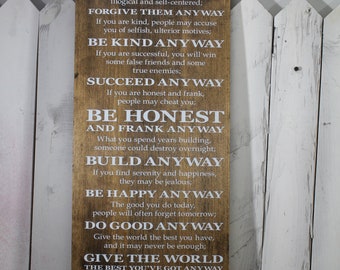 illogical and self-centered;
FORGIVE THEM ANYWAY
If you are kind, people may accuse
you of selfish, ulterior motives;
BE KIND ANYWAY
If you are successful, you will win
some false friends and some
true enemies;
SUCCEED ANYWAY
If you are honest and frank,
people may cheat you;
BE HONEST
AND FRANK ANYWAY
What you spend years building,
someone could destroy overnight;
BUILD ANYWAY
If you find serenity and happiness,
they may be jealous;
BE HAPPY ANYWAY
The good you do today,
people will often forget tomorrow;
DO GOOD ANYWAY
Give the world the best you have,
and it may never be enough;
GIVE THE WORLD
THE BEST YOU'VE GOT ANYWAY